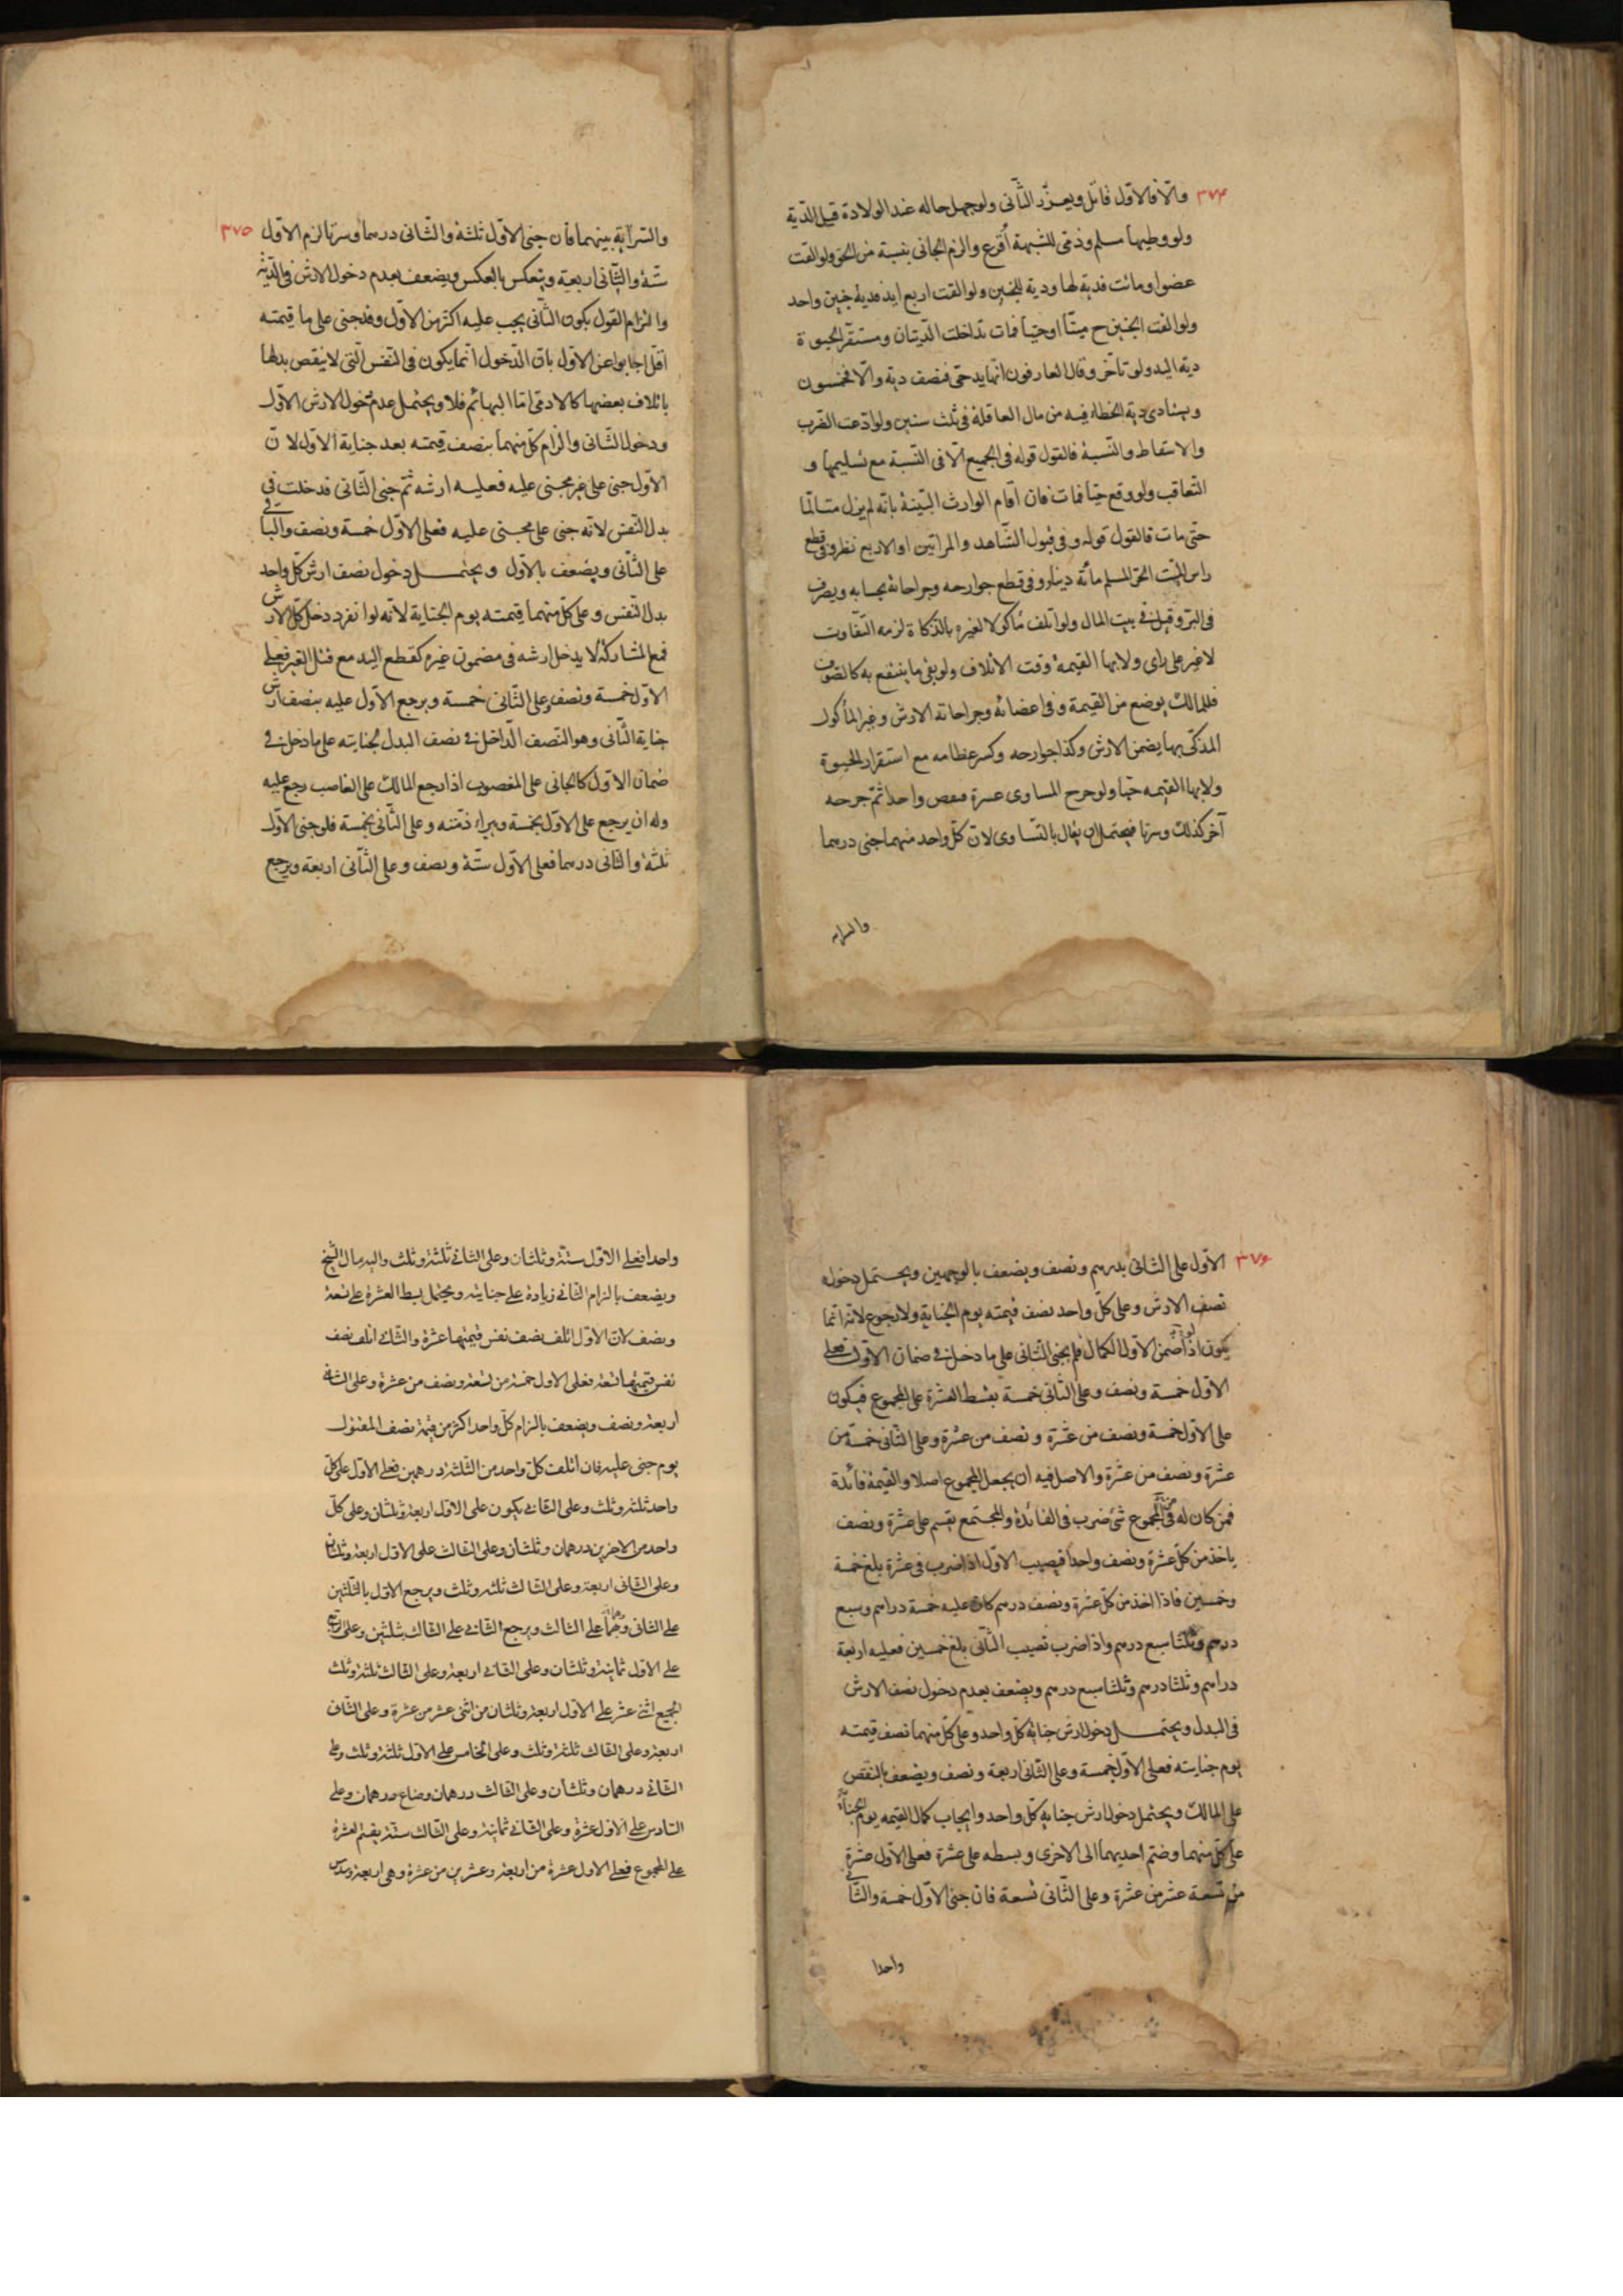 ٣٧٤
والّا فالاوّل قاتل ويعزّر الثّانى ولو جهل حاله عند الولادة قيل الدّية
ولو وطيها مسلم وذمّى للشبهة أُقرع والزم الجانى بنسبة من الحق ولو القت
عضوا وماتت فدية لها ودية للجنين ولو القت اربع ايد فدية جنين واحد
ولو القت الجنين ح ميّتا او حيّا فمات تداخلت الدّيتان ومستقرّ الحيوة
دية اليد ولو تأخّر وقال العارفون انها يد حىّ فنصف دية والّا فخمسون
ويتادى دية الخطاء فيه من مال العاقلة فى ثلث سنين ولو ادّعت الضرب
والاسقاط والنّسبة فالقول قوله فى الجميع الّا فى النّسبة مع تسليمها و
التعاقب ولو وقع حيّا فمات فان اقام الوارث البيّنة بانّه لم يزل متالّما
حتى مات فالقول قوله وفى قبول الشّاهد والمراتين او الاربع نظر وفى قطع
راس الميّت الحرّ المسلم مائة دينار وفى قطع جوارحه وجراحاته بحسابه ويصرف
فى البرّ وقيل فى بيت المال ولو اتلف مأكولا لغيره بالذّكاة لزمه التّفاوت
لا غير على راى ولا بها القيمة وقت الاتلاف ولو بقى ما ينتفع به كالصّوف
فللمالك يوضع من القيمة وفى اعضائه وجراحاته الارش وغير المأكول
المذكّى بها يضمن الارش وكذا جوارحه وكسر عظامه مع استقرار الحيوة
ولا بها القيمة حيّا ولو جرح المساوى عشرة فنقص واحدا ثمّ جرحه
آخر كذلك وسرتا فيحتمل ان يقال بالتّساوى لانّ كلّ واحد منهما جنى درهما
والسراية
٣٧٥
والسّراية بينهما فان جنى الاوّل ثلثة والثّانى درهما وسرتا لزم الاوّل
ستّة والثّانى اربعة وينعكس بالعكس ويضعف بعدم دخول الارش فى الدّية
والتزام القول بكون الثّانى يجب عليه اكثر من الاوّل وقد جنى على ما قيمته
اقلّ اجابوا عن الاوّل بانّ الدّخول انّما يكون فى النّفس الّتى لا ينقص بدلها
باتلاف بعضها كالادمى امّا البهائم فلا ويحتمل عدم دخول الارش الاوّل
ودخول الثّانى والزام كلّ منهما بنصف قيمته بعد جناية الاوّل لانّ
الاوّل جنى على غير مجنى عليه فعليه ارشه ثمّ جنى الثّانى فدخلت فى
بدل النّفس لانّه جنى على مجنى عليه فعلى الاوّل خمسة ونصف والباقى
على الثّانى ويضعف بالاوّل ويحتمل دخول نصف ارش كلّ واحد
بدل النّفس وعلى كلّ منهما قيمته يوم الجناية لانّه لو انفرد دخل كلّ الارش
فمع المشاركة لا يدخل ارشه فى مضمون غيره كقطع اليد مع قتل الغير فعلى
الاوّل خمسة ونصف وعلى الثّانى خمسة ويرجع الاوّل عليه بنصف ارش
جناية الثّانى وهو النّصف الدّاخل فى نصف البدل لجنايته على ما دخل فى
ضمان الاوّل كالجانى على المغصوب اذا رجع المالك على الغاصب رجع عليه
وله ان يرجع على الاوّل بخمسة ويبراء ذمّته وعلى الثّانى بخمسة فلو جنى الاوّل
ثلثة والثانى درهما فعلى الاوّل ستّة ونصف وعلى الثّانى اربعة ويرجع
٣٧٦
الاوّل على الثّانى بدرهم ونصف ويضعف بالوجهين ويحتمل دخول
نصف الارش وعلى كلّ واحد نصف قيمته يوم الجناية ولا رجوع لانّه انّما
يكون لو ضمن الاوّل الكمال فلم يجنى الثّانى على ما دخل فى ضمان الاوّل فعلى
الاوّل خمسة ونصف وعلى الثّانى خمسة بقسط العشرة على المجموع فيكون
على الاوّل خمسة ونصف من عشرة ونصف من عشرة وعلى الثّانى خمسة من
عشرة ونصف من عشرة والاصل فيه ان يجعل المجموع اصلا والقيمة فائدة
فمن كان له فى المجموع شئ ضرب فى الفائدة والمجتمع يقسم على عشرة ونصف
ياخذ من كلّ عشرة ونصف واحدا فيصيب الاوّل اذا ضرب فى عشرة بلغ خمسة
وخمسين فاذا اخذ من كلّ عشرة ونصف درهم كان عليه خمسة دراهم وسبع
درهم وثلثا سبع درهم واذا ضرب نصيب الثّانى بلغ خمسين فعليه اربعة
دراهم وثلثا درهم وثلثا سبع درهم ويضعف بعدم دخول نصف الارش
فى البدل ويحتمل دخول ارش جناية كلّ واحد وعلى كلّ منهما نصف قيمته
يوم جنايته فعلى الاوّل خمسة وعلى الثّانى اربعة ونصف ويضعف بالنقص
على المالك ويحتمل دخول ارش جناية كلّ واحد وايجاب كمال القيمة يوم الجناية
على كلّ منهما وضمّ احديهما الى الاخرى وبسطه على عشرة فعلى الاوّل عشرة
من تسعة عشر من عشرة وعلى الثّانى تسعة فان جنى الاوّل خمسة والثّانى
واحدا
واحدا فعلى الاوّل ستّة وثلثان وعلى الثانى ثلثة وثلث واليه مال الشّيخ
ويضعف بالزام الثّانى زيادة على جنايته ويحتمل بسط العشرة على تسعة
ونصف لانّ الاوّل اتلف نصف نفس قيمتها عشرة والثّانى اتلف نصف
نفس قيمتها تسعة فعلى الاول خمسة من تسعة ونصف من عشرة وعلى الثانى
اربعة ونصف ويضعف بالزام كلّ واحد اكثر من قيمة نصف المقتول
يوم جنى عليه فان اتلف كلّ واحد من الثلثة درهمين فعلى الاوّل على كلّ
واحد ثلثة وثلث وعلى الثّانى يكون على الاوّل اربعة وثلثان وعلى كلّ
واحد من الاخرين درهمان وثلثان وعلى الثالث على الاوّل اربعة وثلثان
وعلى الثّانى اربعة وعلى الثالث ثلثة وثلث ويرجع الاوّل بالثّلثين
على الثانى وهما على الثالث ويرجع الثّانى على الثّالث بثلثين وعلى الرّابع
على الاوّل ثمانية وثلثان وعلى الثّانى اربعة وعلى الثّالث ثلثة وثلث
الجميع اثنى عشر على الاوّل اربعة وثلثان من اثنى عشر من عشرة وعلى الثّانى
اربعة وعلى الثّالث ثلثة وثلث وعلى الخامس على الاوّل ثلثة وثلث وعلى
الثّانى درهمان وثلثان وعلى الثالث درهمان وضاع درهمان وعلى
السّادس على الاوّل عشرة وعلى الثّانى ثمانية وعلى الثّالث ستّة يقسم العشرة
على المجموع فعلى الاوّل عشرة من اربعة وعشرين من عشرة وهى اربعة وسدس